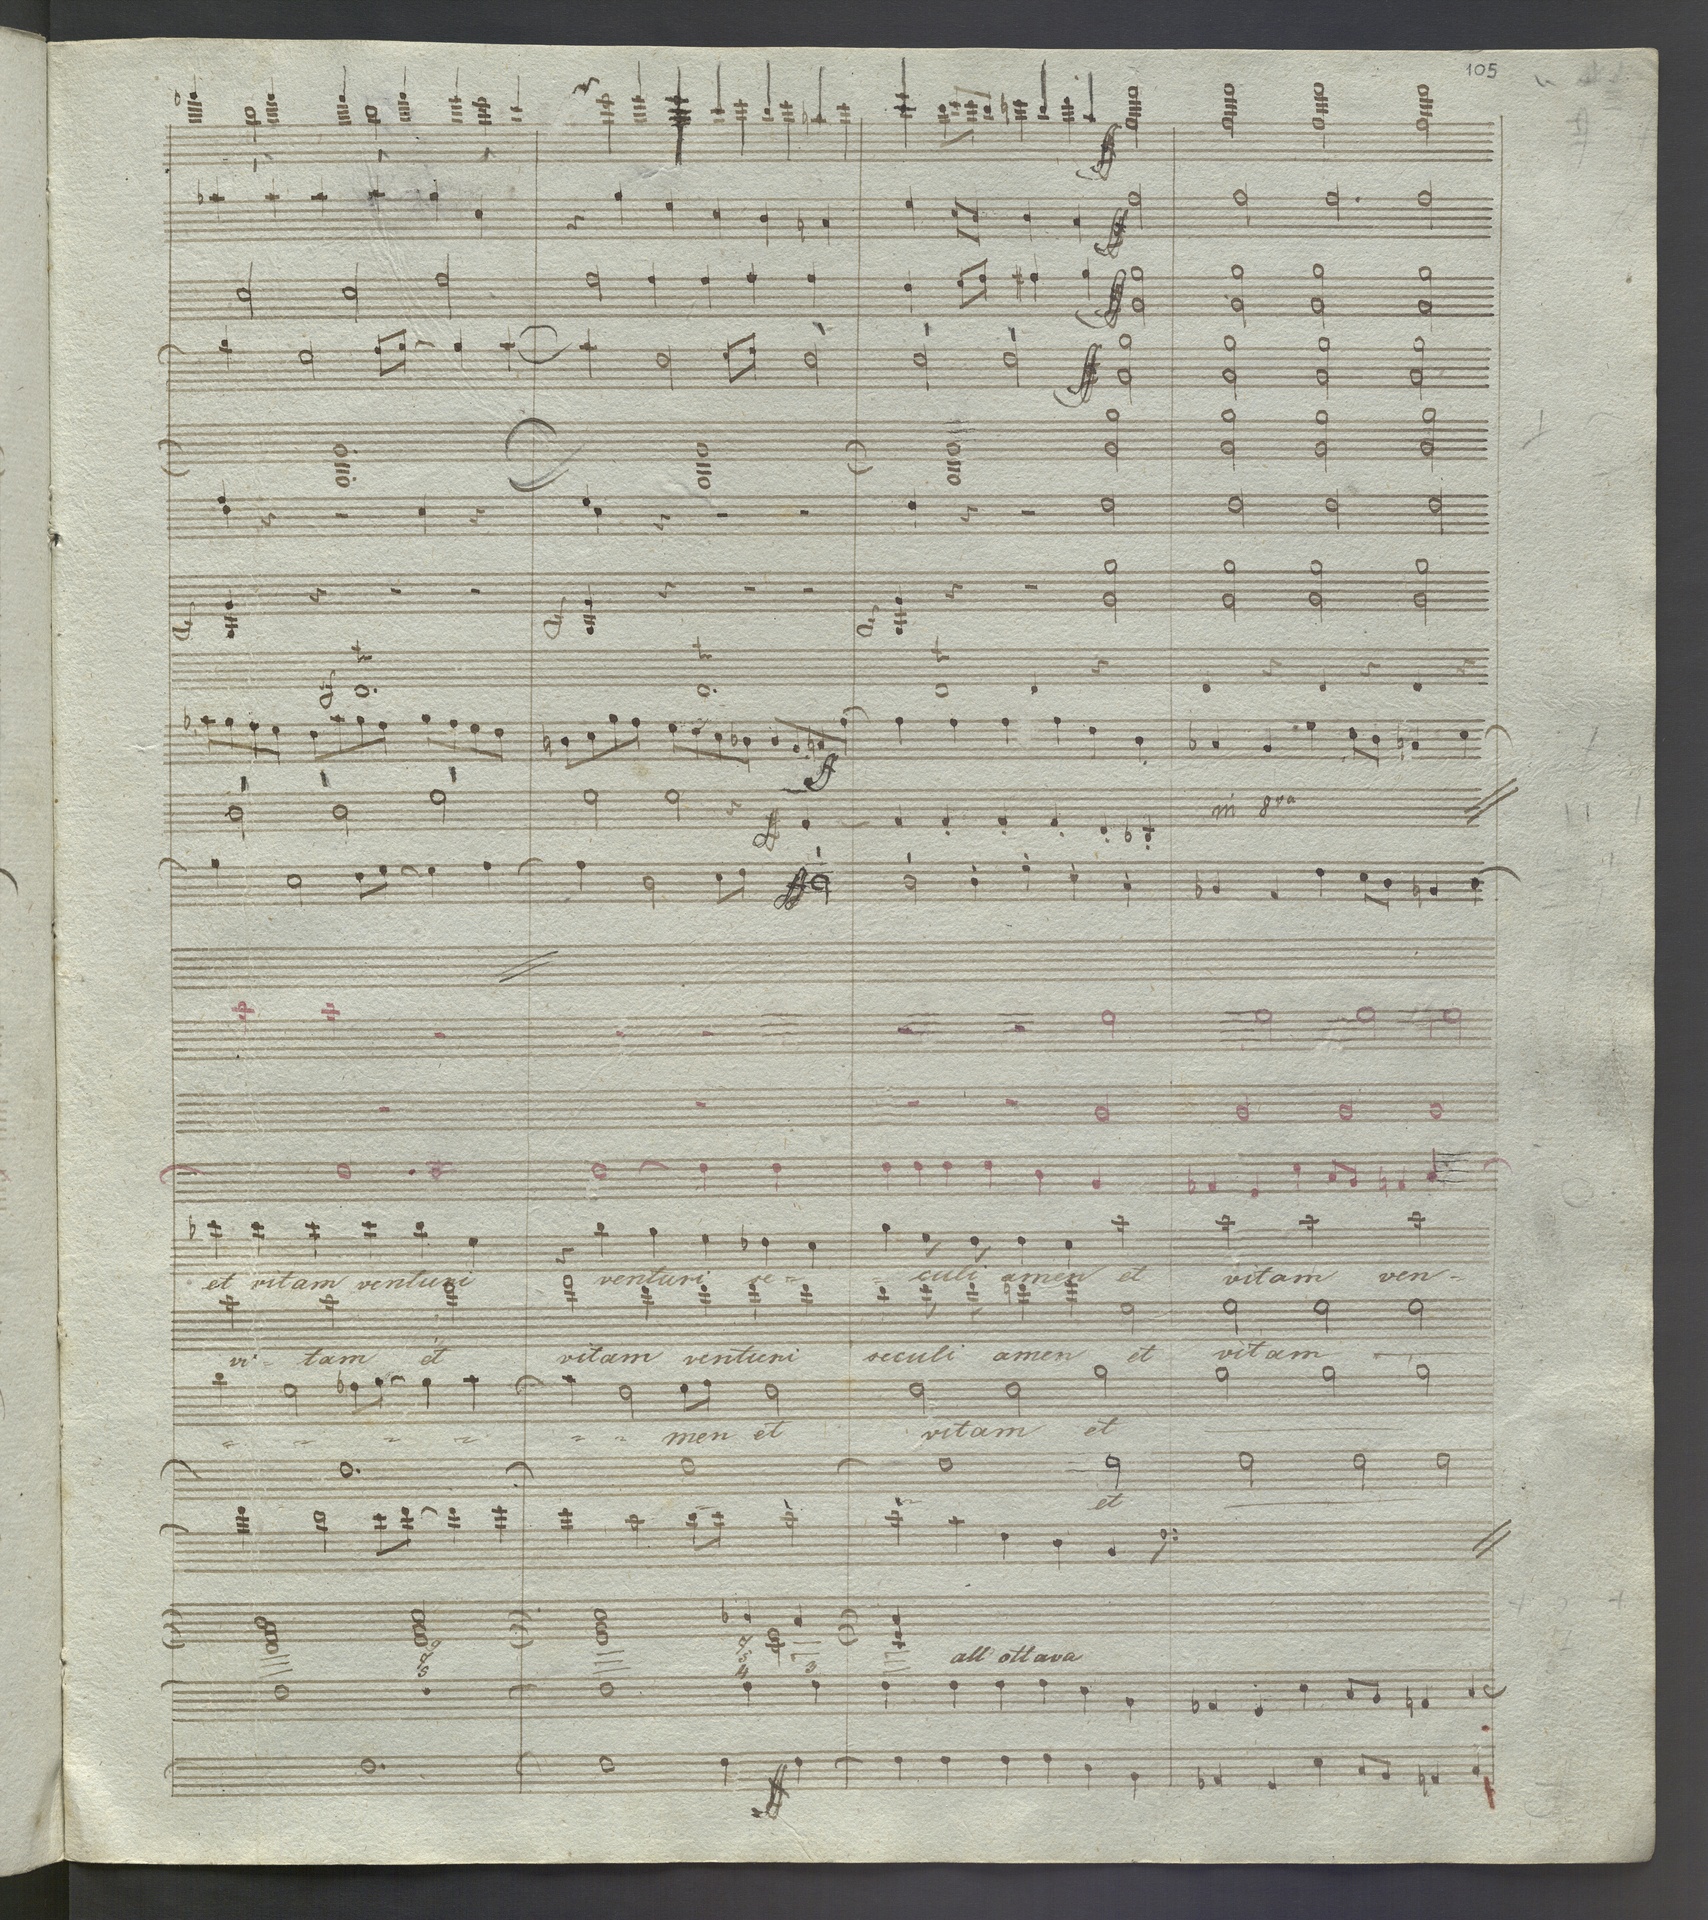 105
ff
ff
ff
ff
tr tr tr
ff
in 8va
ff
ff
et vitam venturi venturi se - culi amen et vitam ven -
vi - tam et vitam venturi seculi amen et vitam
men et vitam et
et
4 3
all' ottava
ff